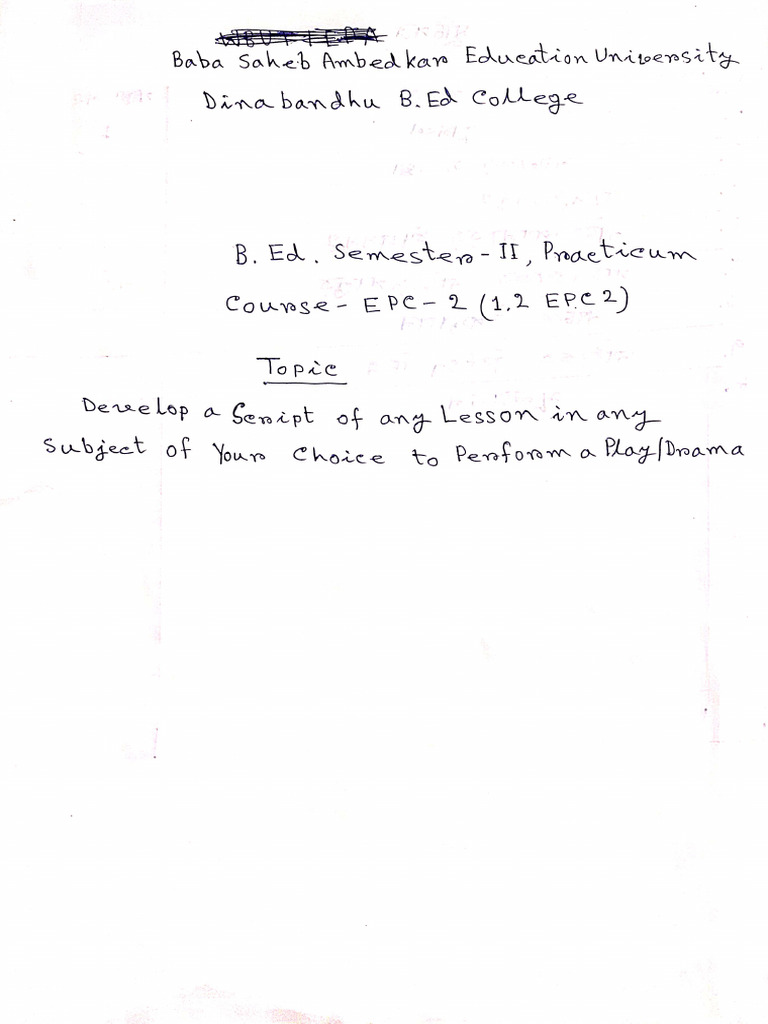 Baba Saheb Ambedkar Education University
Dinabandhu B.Ed College
B. Ed. Semester - II, Practicum
Course - EPC - 2 (1.2 EPC 2)
Topic
Develop a Script of any Lesson in any
Subject of Your Choice to Perform a Play/Drama